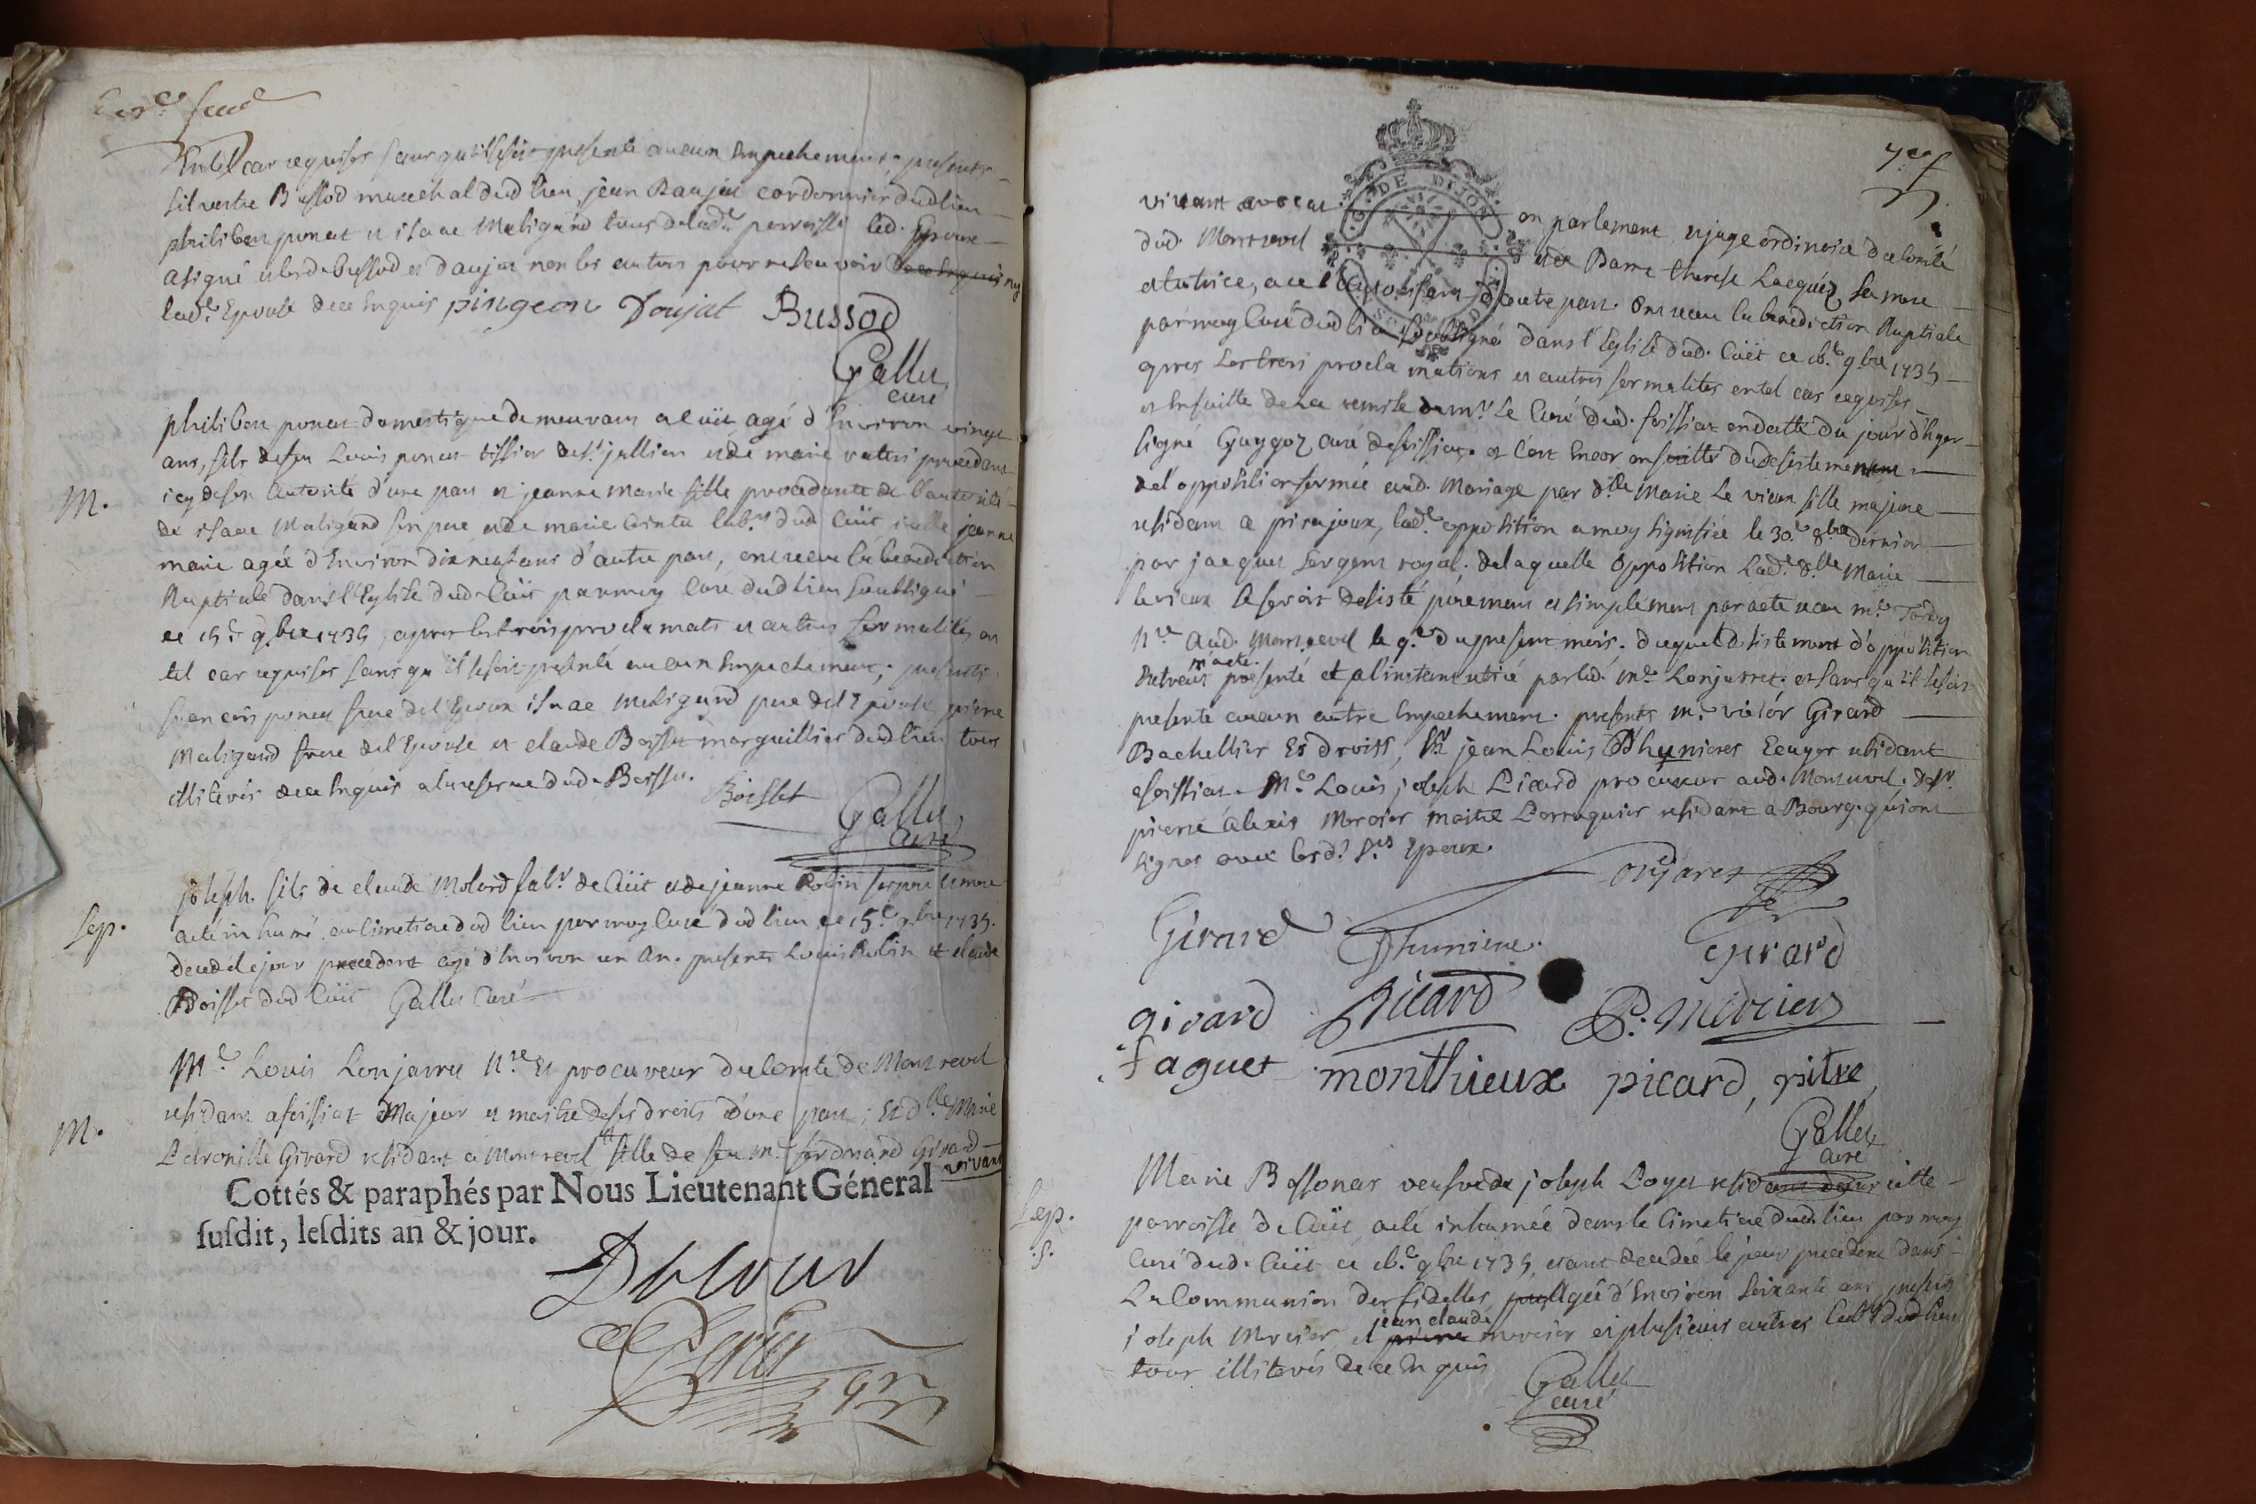 Entel cas requises sans qu'il se soit presenté aucun Empechement; presents
silvestre Bussod marechal dud lieu, jean Daujat cordonnier dud lieu
philiber ponat et isaac Maligand tous de lad.e parroisse led. Epoux
a signé et lesd. Bussod et daujat non les autres pour ne sçavoir ny
lad.e Epouse de ce Enquis pingeon Doujat Bussod
Gallet
curé
M.
philiber ponat domestique demeurant a Cuët agé d'Environ vingt
ans, fils de feu Louis ponat tissier de St jullien et de marie procedant
icy de son autorité d'une part et jeanne marie fille procedante de l'autorité
de isaac Maligand son pere et de marie lab.r dud Cuët icelle jeanne
marie agée d'Environ dix neuf ans d'autre part, ont receu la benediction
Nuptiale dans l'Eglise dud. Cuët par moy Curé dud lieu soussigné
ce 15.e 9.bre 1735, apres les trois proclamats et autres formalités en
tel cas requises sans qu'il se soit presenté aucun Empechement; presents
francois ponat frere de l'Epoux isaac Maligand pere de l'Epouse pierre
Maligand frere de l'Epouse et claude Boisset marguillier dud lieu tous
illiterés de ce Enquis a la reserve dud. Boisset.
Boisset
Gallet
curé
Sep.
joseph fils de claude Molard lab.r de Cuët et de jeanne Robin ses pere et mere
a eté inhumé au Cimetiere dud lieu par moy Curé dud lieu ce 15.e 9.bre 1735.
decedé le jour precedent agé d'Environ un An. presents Louis Robin et claude
Boisset dud Cuët Gallet Curé
M.
M.e Louis Lonjarret N.re Et procureur du Comté de Montrevel
residant a foissiat Majeur et maitre de ses droits d'une part; Et d.lle Marie
Petronille Girard residant a Montrevel fille de feu m.e ferdinand Girard
vivant
Cottés & paraphés par Nous Lieutenant Géneral
susdit, lesdits an & jour.
vivant avocat en parlement et juge ordinaire du Comté
dud. Montrevel et de Dame therese Lacquéz sa mere
et tutrice, d'autre part. Ont receu la benediction Nuptiale
par moy Curé dud lieu soussigné dans l'Eglise dud. Cuët ce 16.e 9.bre 1735
apres les trois proclamations et autres formalités en tel cas requises
et Ensuitte de la remise de m.r Le Curé dud. foissiat en datte du jour d'hyer
signé Guygoz curé de foissiat. et c'est Encor en suitte du desistement
de l'opposition formée aud. Mariage par d.lle Marie Le vieux fille majeure
residant a pirajoux, lad.e opposition a moy signifiée le 30.e 8.bre dernier
par jacquet sergent royal. de laquelle Opposition Lad.e d.lle Marie
levieux se seroit desisté purement et simplement par acte receu m.e
N.re Aud. Montrevel le 9.e du present mois. duquel desistement d'opposition
m'a eté
presenté et a l'instant retiré par led. m.e Lonjarret. et sans qu'il se soit
presenté aucun autre Empechement. presents M.e victór Girard
Bachellier Es droits, S.r jean Louis Dhunieres Ecuyer residant
a foissiat. M.e Louis joseph Picard procureur aud. Montrevel. et S.r
pierre alexis Mercier maitre Perruquier residant a Bourg. qui ont
signés avec lesd.s S.rs Epoux.
Lonjarret
Girard Dhuniere. Girard
girard Picard P. Mercier
faguet monthieux picard, pitre
Gallet
curé
Sep.
Marie Bossonas veufve de joseph Poget cette
parroisse de Cuët a eté inhumée dans le Cimetiere dud. lieu par moy
Curé dud. Cuët ce 16.e 9.bre 1735, etant decedée le jour precedent dans
La Communion des fidelles, Agée d'Environ soixante ans presents
jean claude
joseph Mercier et mercier et plusieurs autres lab.rs dud. lieu
tous illiterés de ce Enquis
Gallet
curé